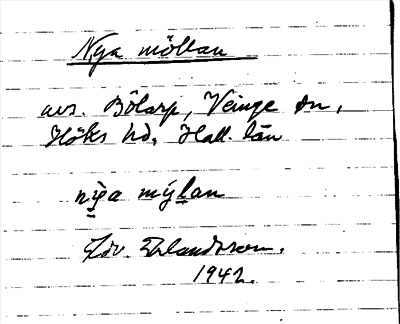 Nya möllan
avs. Bölarp, Veinge sn,
Höks hd, Hall. län
nỹa mýlan
Edv. Erlandsson.
1942.